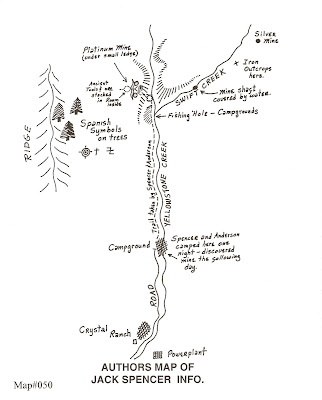 Silver
Mine
Platinum Mine
(under small ledge)
Iron
Outcrops
here.
Ancient
Tools
stacked
in Room
inside
SWIFT CREEK
mine shaft
covered by water.
Fishing Hole - Campgrounds
RIDGE
Spanish
Symbols
on trees
Trail taken by Spencer/Anderson
YELLOWSTONE CREEK
Campground
Spencer and Anderson
camped here one
night - discovered
mine the following
day.
ROAD
Crystal
Ranch
Powerplant
AUTHORS MAP OF
JACK SPENCER INFO.
Map#050